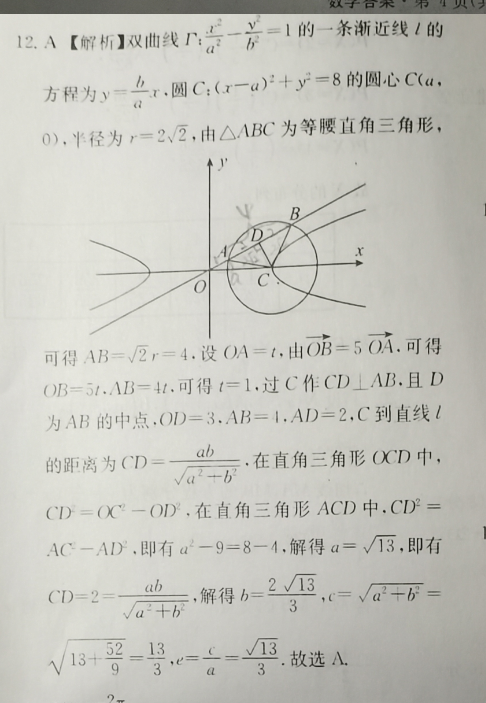 数学答案·第4页(共
12. A 【解析】双曲线Γ:x²/a²-y²/b²=1的一条渐近线l的
方程为y=b/a x,圆C:(x-a)²+y²=8的圆心C(a,
0),半径为r=2√2,由△ABC为等腰直角三角形,
y
B
D
A
x
O
C
可得AB=√2r=4.设OA=t,由OB→=5OA→,可得
OB=5t,AB=4t,可得t=1,过C作CD⊥AB,且D
为AB的中点,OD=3,AB=4,AD=2,C到直线l
的距离为CD=ab/√(a²+b²).在直角三角形OCD中,
CD²=OC²-OD²,在直角三角形ACD中,CD²=
AC²-AD²,即有a²-9=8-4,解得a=√13,即有
CD=2=ab/√(a²+b²),解得b=2√13/3,c=√(a²+b²)=
√(13+52/9)=13/3,e=c/a=√13/3.故选A.